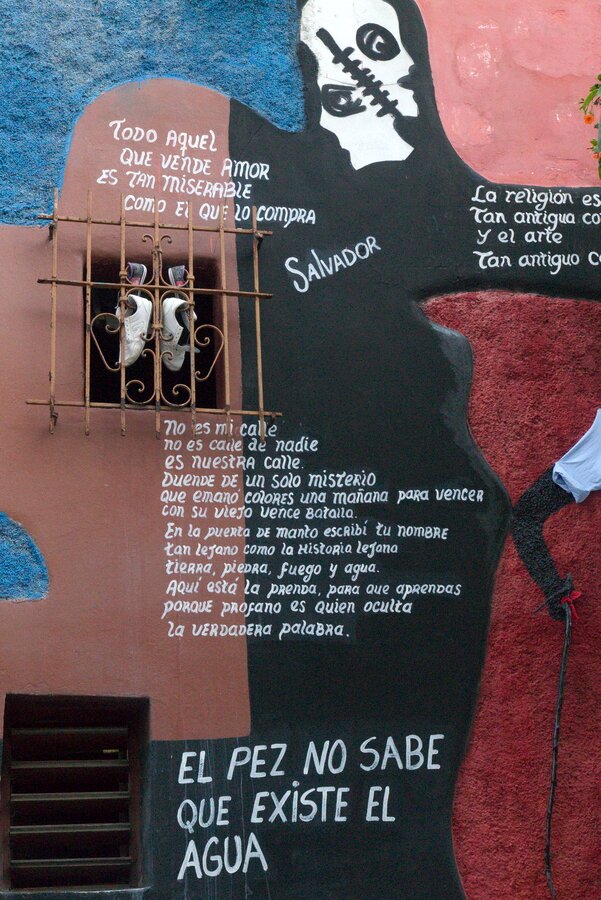 Todo Aquel
que vende Amor
es tan miserable
como el que lo compra
Salvador
La religión es
Tan antigua co
y el arte
Tan antiguo c
No es mi calle
no es calle de nadie
es nuestra calle.
Duende de un solo misterio
que emanó colores una mañana para vencer
con su viejo vence batalla.
En la puerta de manto escribí tu nombre
tan lejano como la Historia lejana
tierra, piedra, fuego y agua.
Aquí está la prenda, para que aprendas
porque profano es quien oculta
la verdadera palabra.
EL PEZ NO SABE
QUE EXISTE EL
AGUA